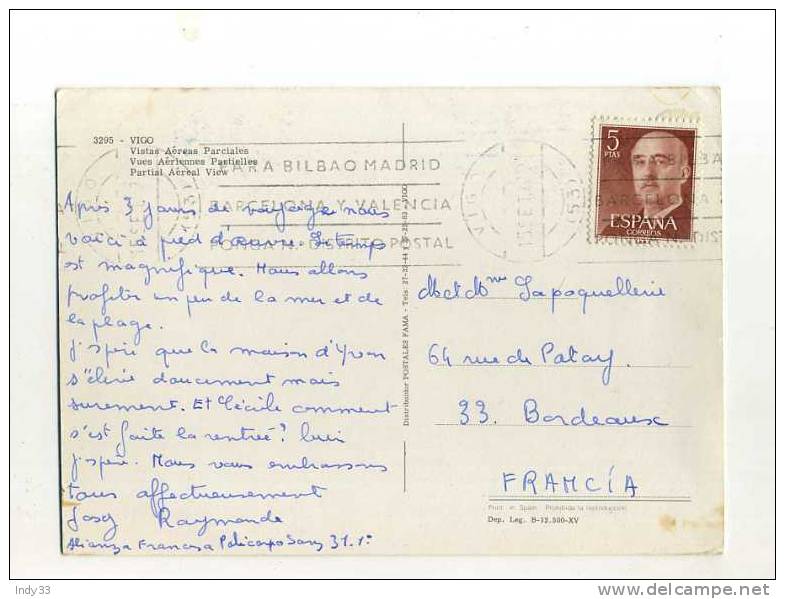 3295 - VIGO
Vistas Aéreas Parciales
Vues Aériennes Partielles
Partial Aérial View
PARA BILBAO MADRID
BARCELONA Y VALENCIA
PONGA N.º DISTRITO POSTAL
5
PTAS
ESPAÑA
CORREOS
Après 3 jours de voyage nous
voici à pied d'œuvre. Le temps
est magnifique. Nous allons
profiter un peu de la mer et de
la plage.
J'espère que la maison d'Yvan
s'élève doucement mais
surement. Et Cécile comment
s'est faite la rentrée? bien
j'espère. Nous vous embrassons
tous affectueusement
Josy Raymonde
Alianza Francesa Policarpo Sanz 31.1º
Distribuidor POSTALES FAMA - Tels.
M et Mme Lapoquellerie
64 rue de Patay
33. Bordeaux
FRANCÍA
Print. in Spain Prohibida la reproducción
Dep. Leg. B-12.300-XV
Indy33
delcampe.net